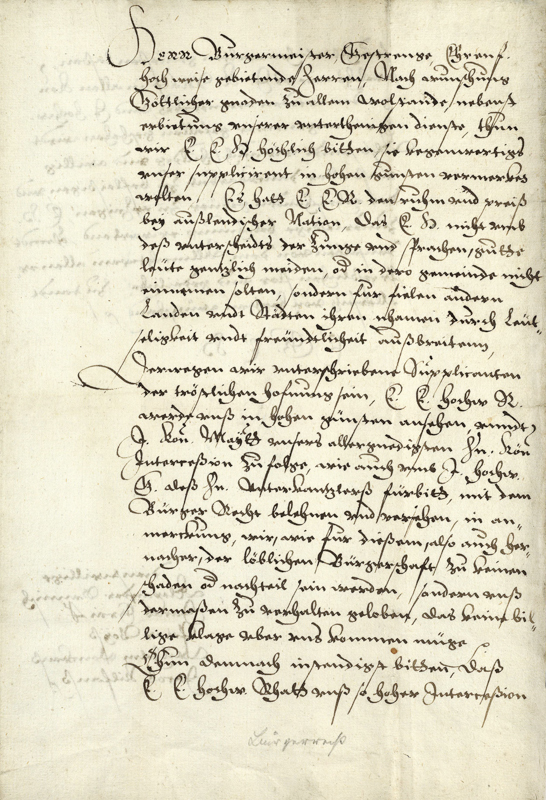 Herr Burgermeister Gestrenge Ehrenf.
hochweise gebietende Herren, Nach wunschung
Göttlicher gnaden zu allem wolstande, nebenst
erbietung unserer unterthenigen dienste, thun
wir E. E. H. höchlich bitten, sie kegenwertigs
unser supplicirent in hohen gunsten vermerken
wolten. Es hatt E. E. R. den ruhm und preiß
bey außlendischer Nation, das E. H. nicht umb
deß unterscheidts der Zunge und Sprachen, gutte
leute gentzlich meiden, od in dero gemeinde nicht
einnemen solten, sondern fur fielen andern
Landen undt Städten ihren nhamen durch Leut-
seligkeit undt freündtlicheit außbreitenn,
Derwegen wir unterschriebene Supplicanten
der tröstlichen hofnung sein, E. E. hochw. R.
werde unß in hohen gunsten ansehen, undt
J. Kön. Maytt unsers allergnedigsten Hn. Kön
Intercession zu folge, wie auch umb J. hochw.
G. deß Hn. Unterkantzlerß fürbitt, mit dem
Bürger Recht belehnen und versehen, in an-
merckung, wir, wie fur diesem, also auch her-
nacher, der löblichen Bürgerschaft zu keinen
schaden od nachteil sein werden, sondern unß
dermaßen zu verhalten geloben, das keine bil-
lige klage uber uns kommen müge
Thun demnach instendigst bitten, Daß
E. E. hochw. Rhatt unß so hoher Intercession
Bürgerrecht